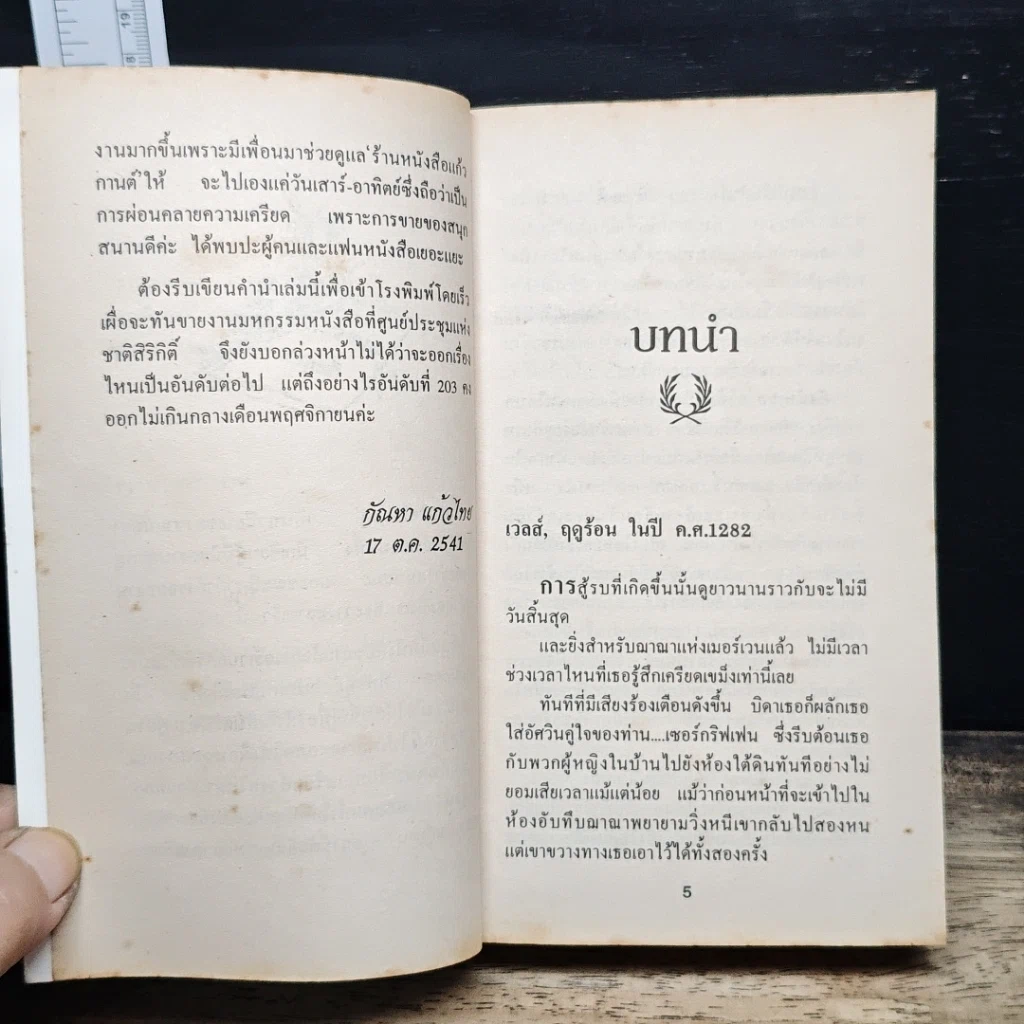 19
18
งานมากขึ้นเพราะมีเพื่อนมาช่วยดูแล‘ร้านหนังสือแก้ว
กานต์’ให้ จะไปเองแค่วันเสาร์-อาทิตย์ซึ่งถือว่าเป็น
การผ่อนคลายความเครียด เพราะการขายของสนุก
สนานดีค่ะ ได้พบปะผู้คนและแฟนหนังสือเยอะแยะ
ต้องรีบเขียนคำนำเล่มนี้เพื่อเข้าโรงพิมพ์โดยเร็ว
เผื่อจะทันขายงานมหกรรมหนังสือที่ศูนย์ประชุมแห่ง
ชาติสิริกิติ์ จึงยังบอกล่วงหน้าไม่ได้ว่าจะออกเรื่อง
ไหนเป็นอันดับต่อไป แต่ถึงอย่างไรอันดับที่ 203 คง
ออกไม่เกินกลางเดือนพฤศจิกายนค่ะ
กัณหา แก้วไทย
17 ต.ค. 2541
บทนำ
เวลส์, ฤดูร้อน ในปี ค.ศ.1282
การสู้รบที่เกิดขึ้นนั้นดูยาวนานราวกับจะไม่มี
วันสิ้นสุด
และยิ่งสำหรับฌาณาแห่งเมอร์เวนแล้ว ไม่มีเวลา
ช่วงเวลาไหนที่เธอรู้สึกเครียดเขม็งเท่านี้เลย
ทันทีที่มีเสียงร้องเตือนดังขึ้น บิดาเธอก็ผลักเธอ
ใส่อัศวินคู่ใจของท่าน....เซอร์กริฟเฟน ซึ่งรีบต้อนเธอ
กับพวกผู้หญิงในบ้านไปยังห้องใต้ดินทันทีอย่างไม่
ยอมเสียเวลาแม้แต่น้อย แม้ว่าก่อนหน้าที่จะเข้าไปใน
ห้องอับทึบฌาณาพยายามวิ่งหนีเขากลับไปสองหน
แต่เขาขวางทางเธอเอาไว้ได้ทั้งสองครั้ง
5